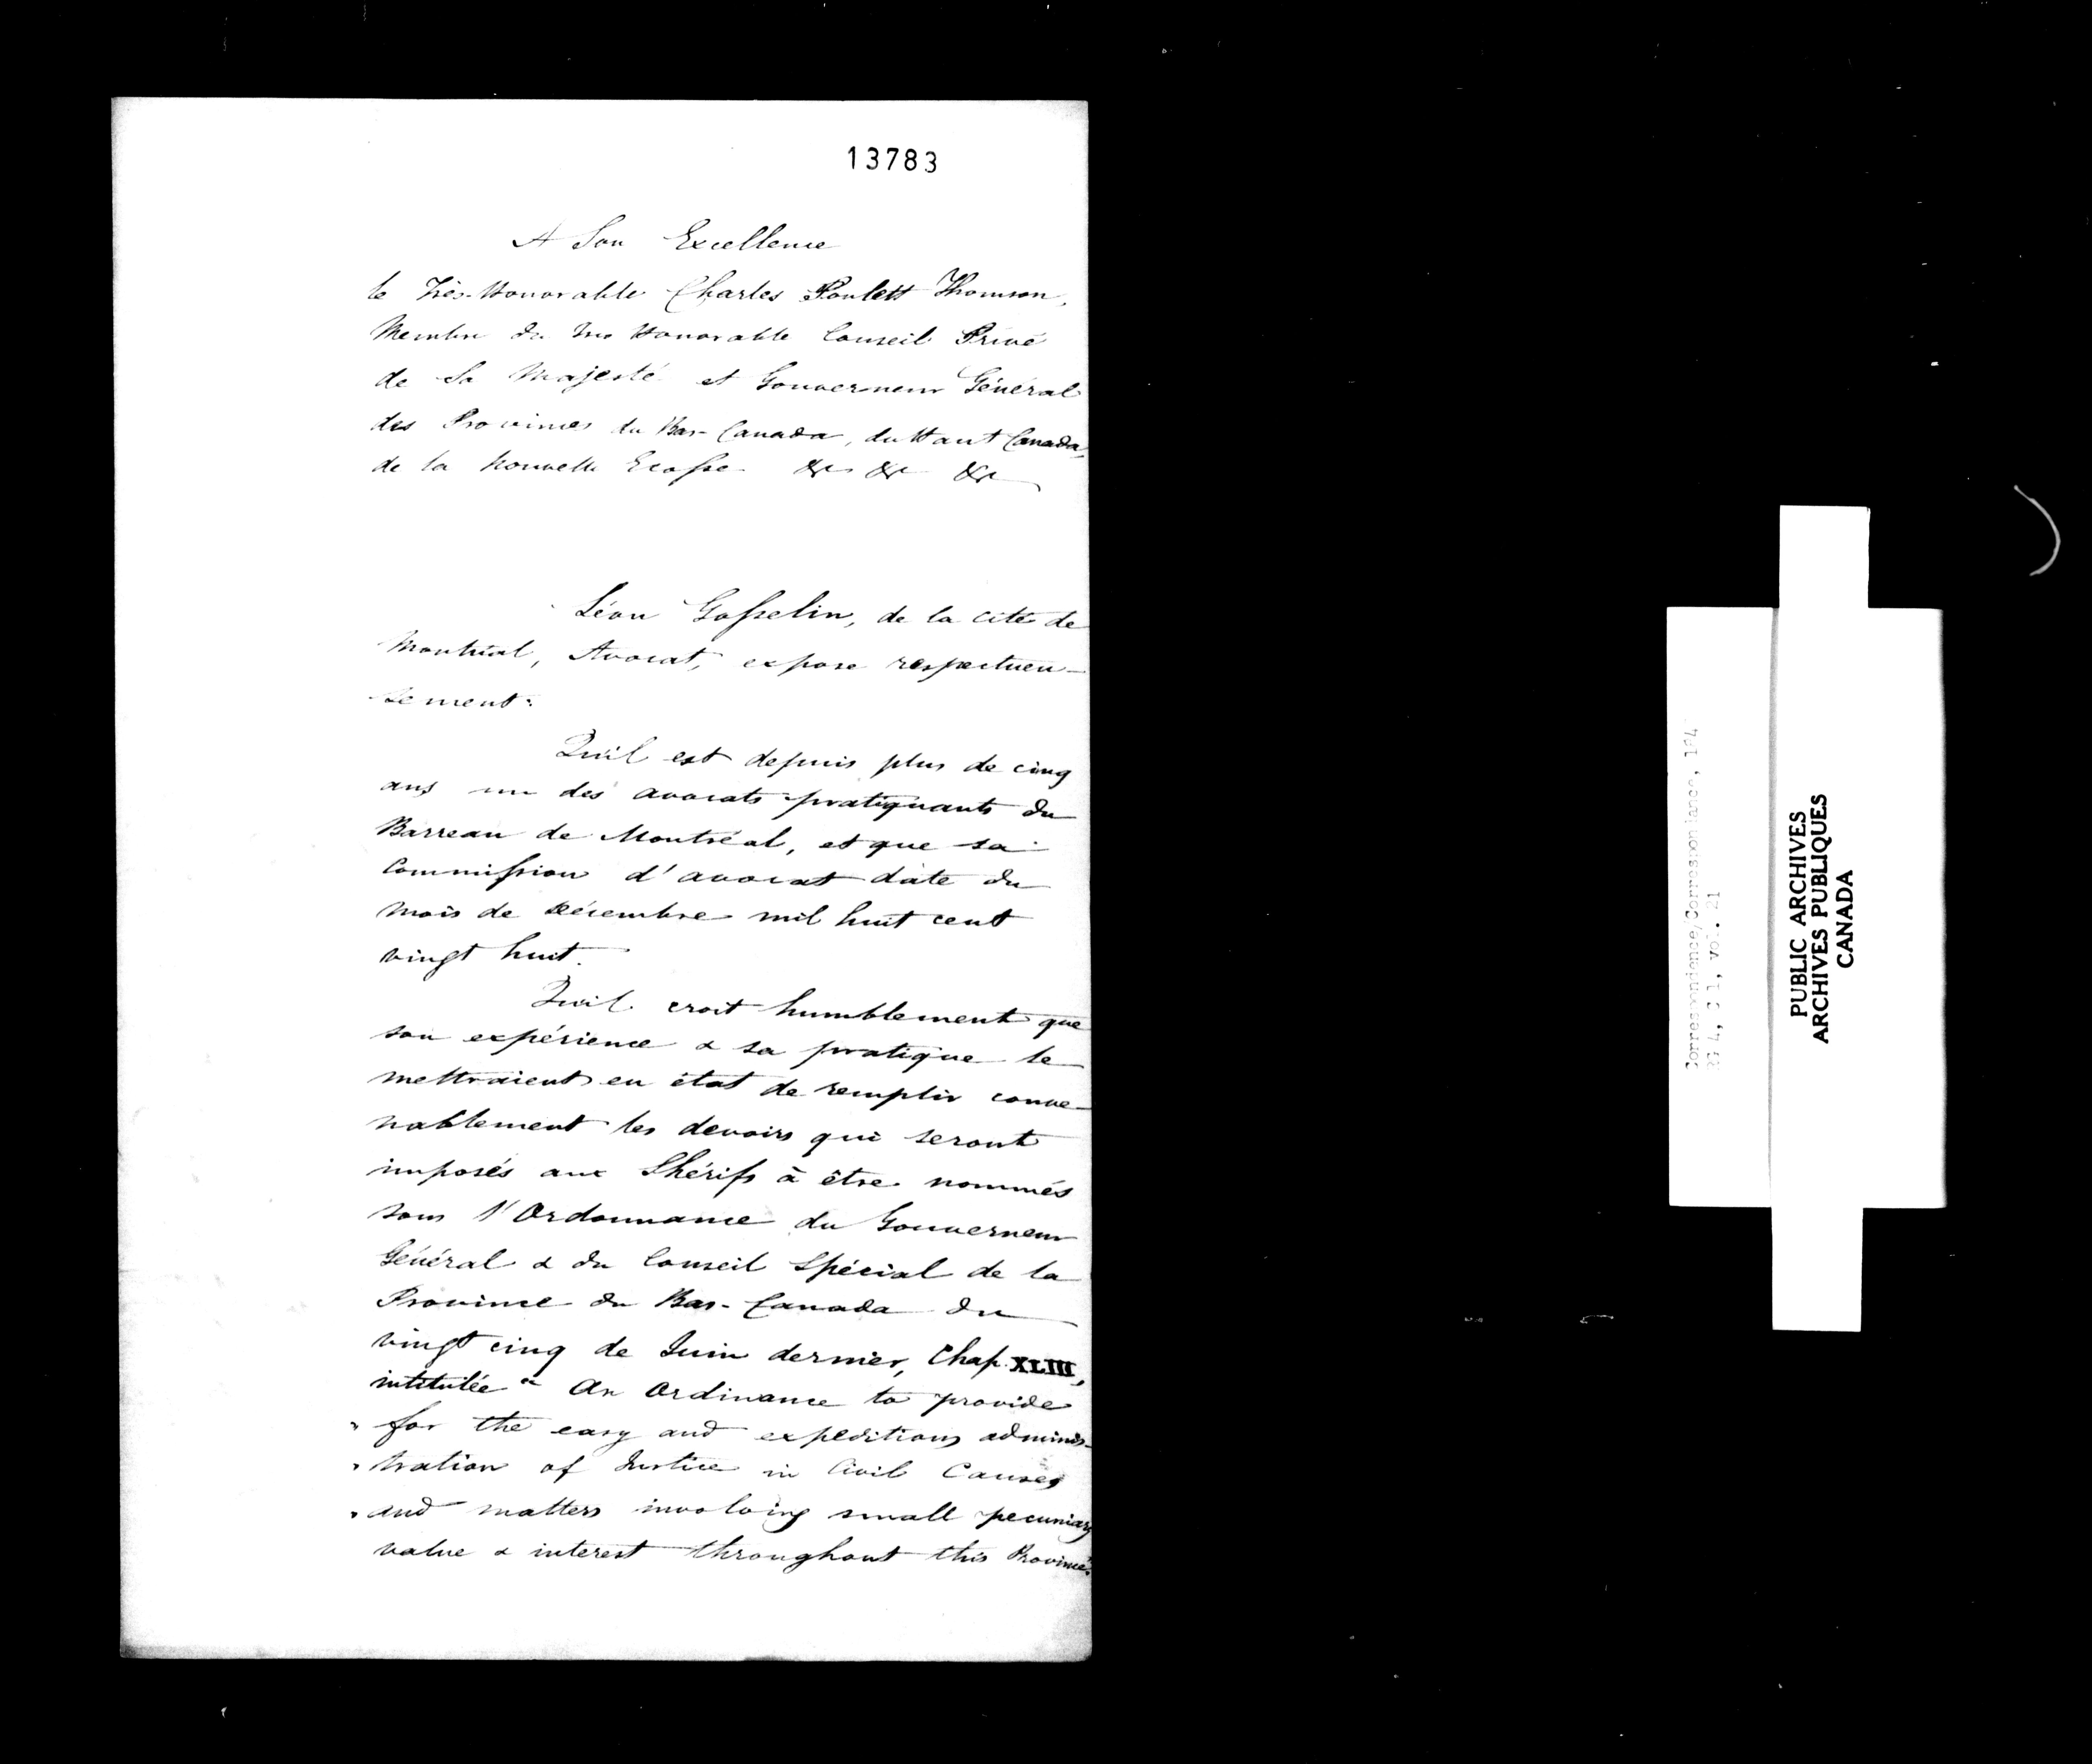 13783
A Son Excellence
le Très-Honorable Charles Poulett Thomson,
Membre du Très Honorable Conseil Privé
de Sa Majesté et Gouverneur Général
des Provinces du Bas-Canada, du Haut Canada,
de la Nouvelle Ecosse &c &c &c
Léon Gosselin, de la cité de
Montréal, Avocat, expose respectueu-
sement:
Qu'il est depuis plus de cinq
ans un des avocats pratiquants du
Barreau de Montréal, et que sa
Commission d'avocat date du
mois de Décembre mil huit cent
vingt huit.
Qu'il croit humblement que
son expérience & sa pratique le
mettraient en état de remplir conve-
nablement les devoirs qui seront
imposés aux Shérifs à être nommés
sous l'Ordonnance du Gouverneur
Général & du Conseil Spécial de la
Province du Bas-Canada du
vingt cinq de Juin dernier, Chap. XLIII,
intitulée " An Ordinance to provide
" for the easy and expeditious adminis-
" tration of Justice in Civil Causes
" and matters involving small pecuniary
value & interest throughout this Province."
Correspondence/Correspondance, 184
RG 4, C 1, vol. 21
PUBLIC ARCHIVES
ARCHIVES PUBLIQUES
CANADA